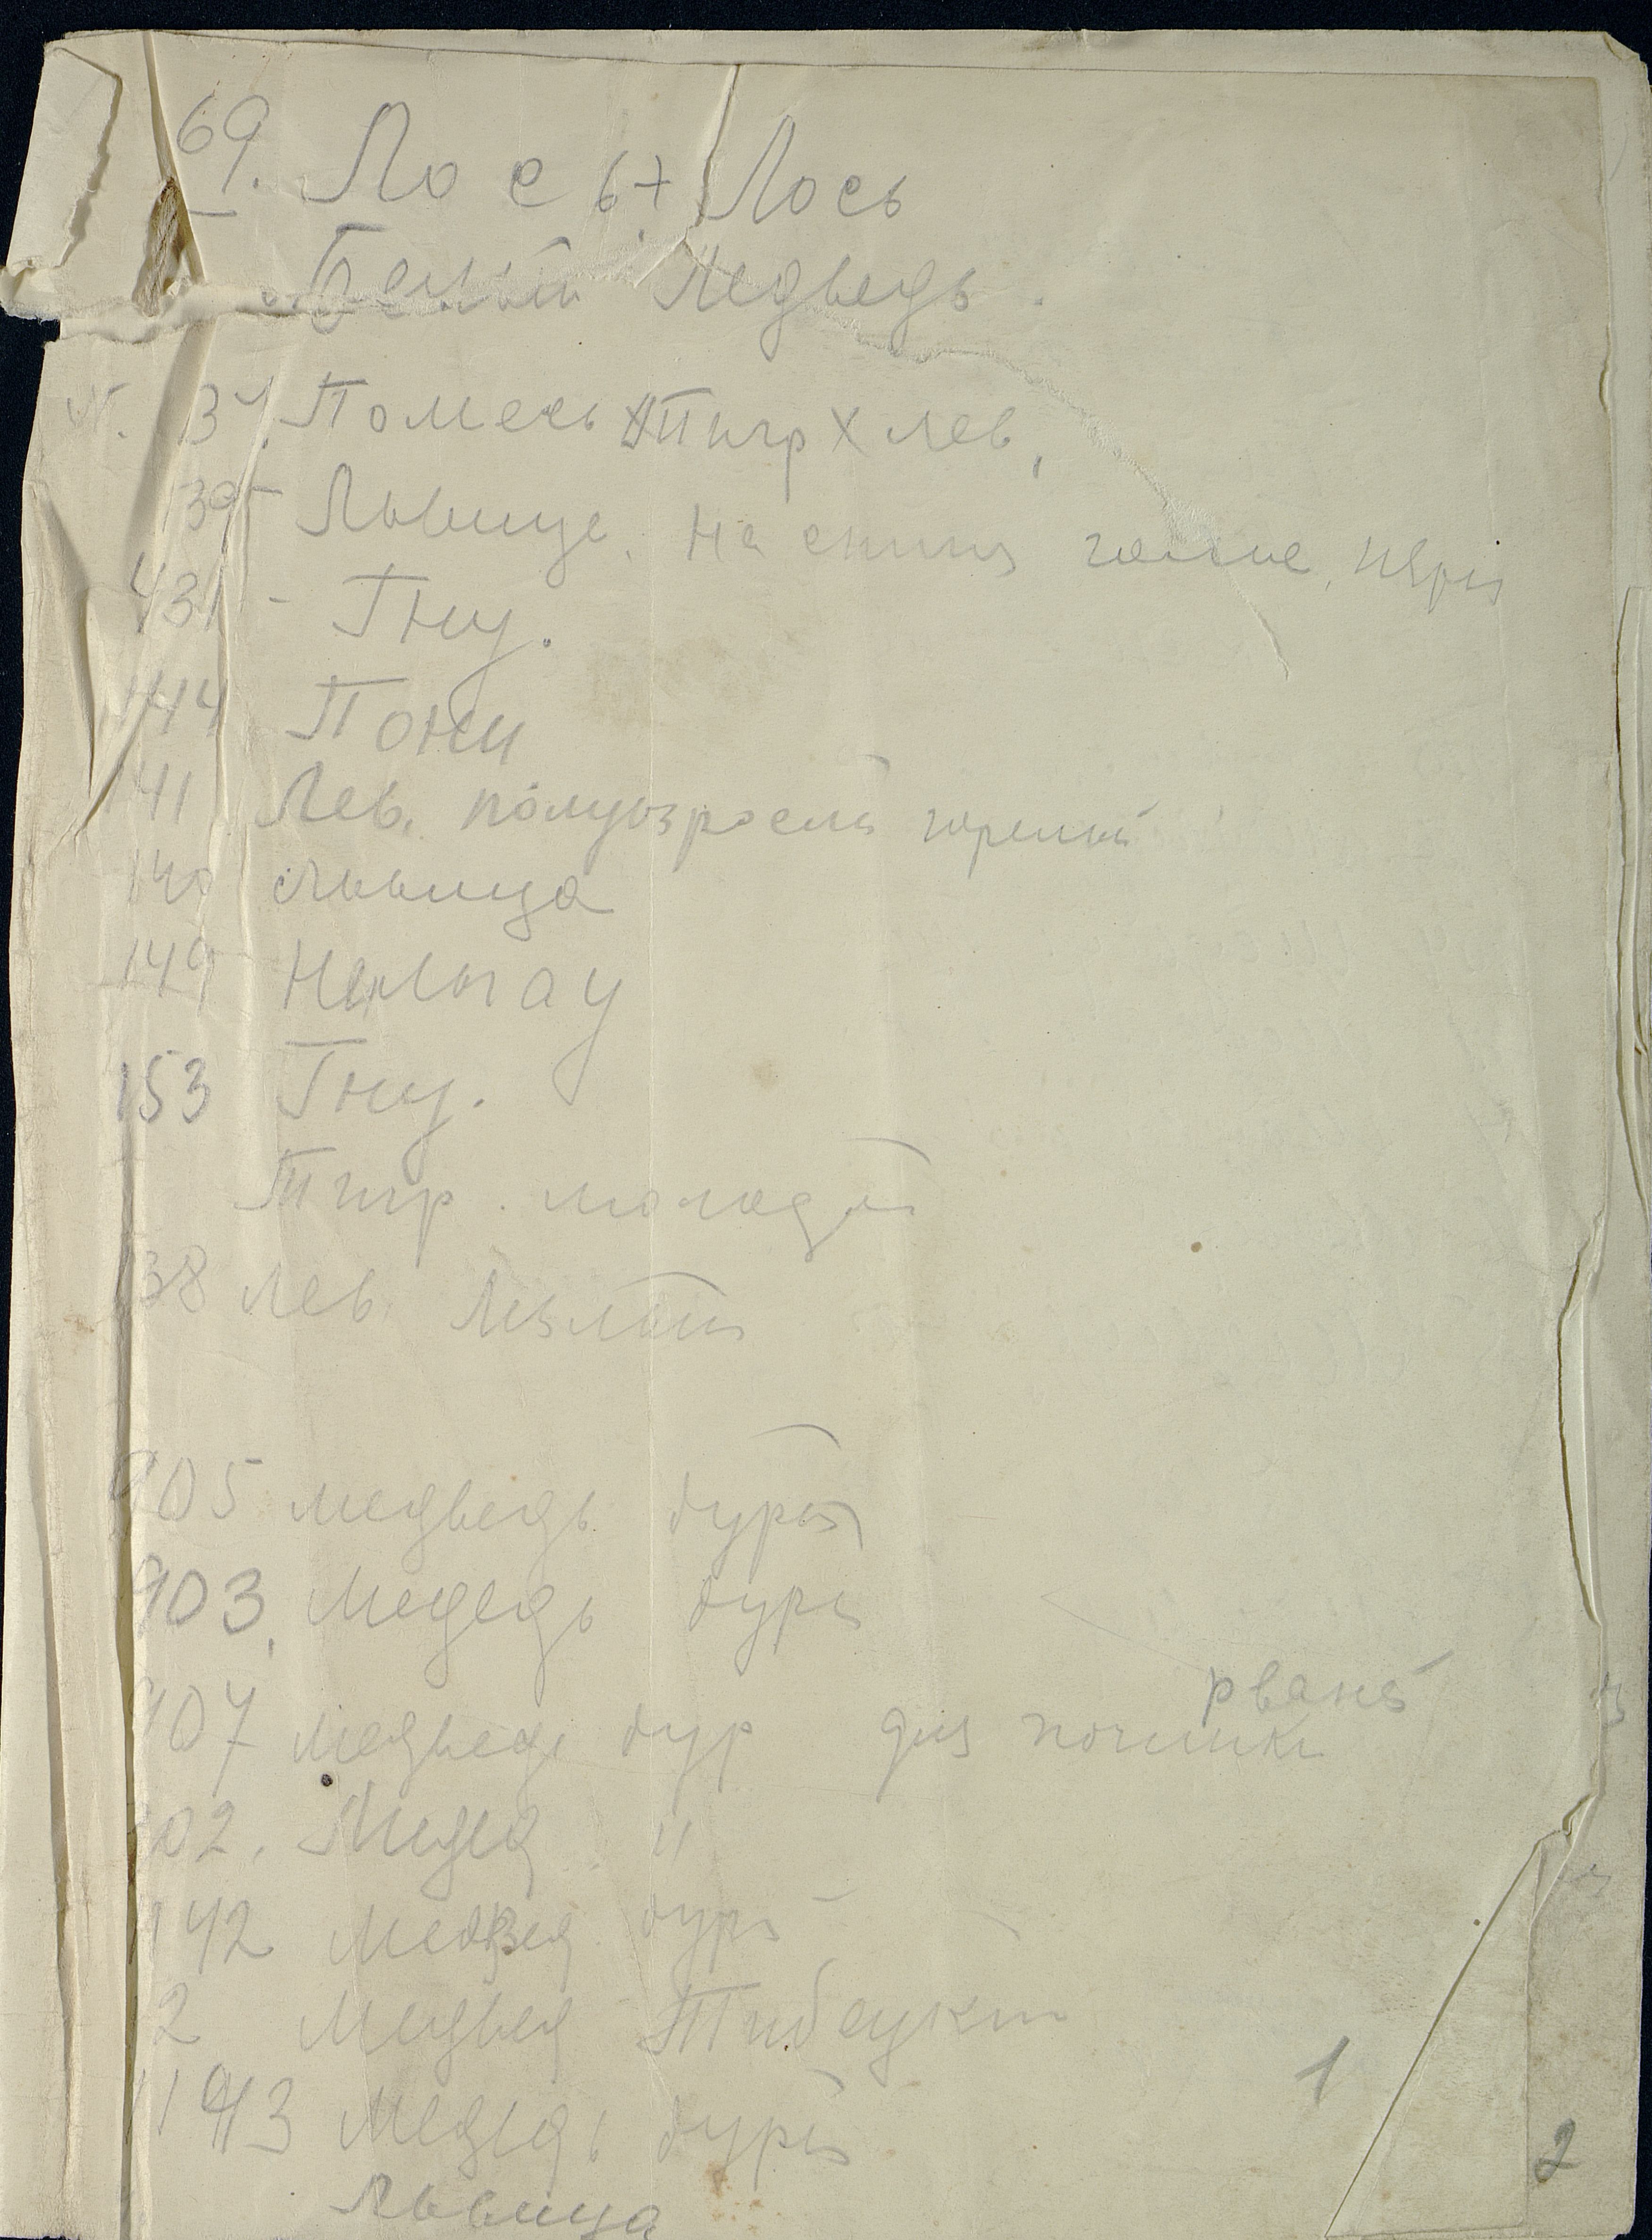 69. Лось + Лось
Белый Медведь.
37. Помесь Тигр X лев,
395 Львица. На спине
431 - Гну.
144 Пони
141 Лев. полувзрослый
140 Львица
149 Нельгау
153 Гну.
Тигр. молодой
138 Лев.
905 медведь бурый
903, Медедь бурый
907 медведь бур для починки
рваный
902. Медед "
942 Медвед бурый
2 Медвед Тибетский
1193 Медведь бурый
Львица
1
2